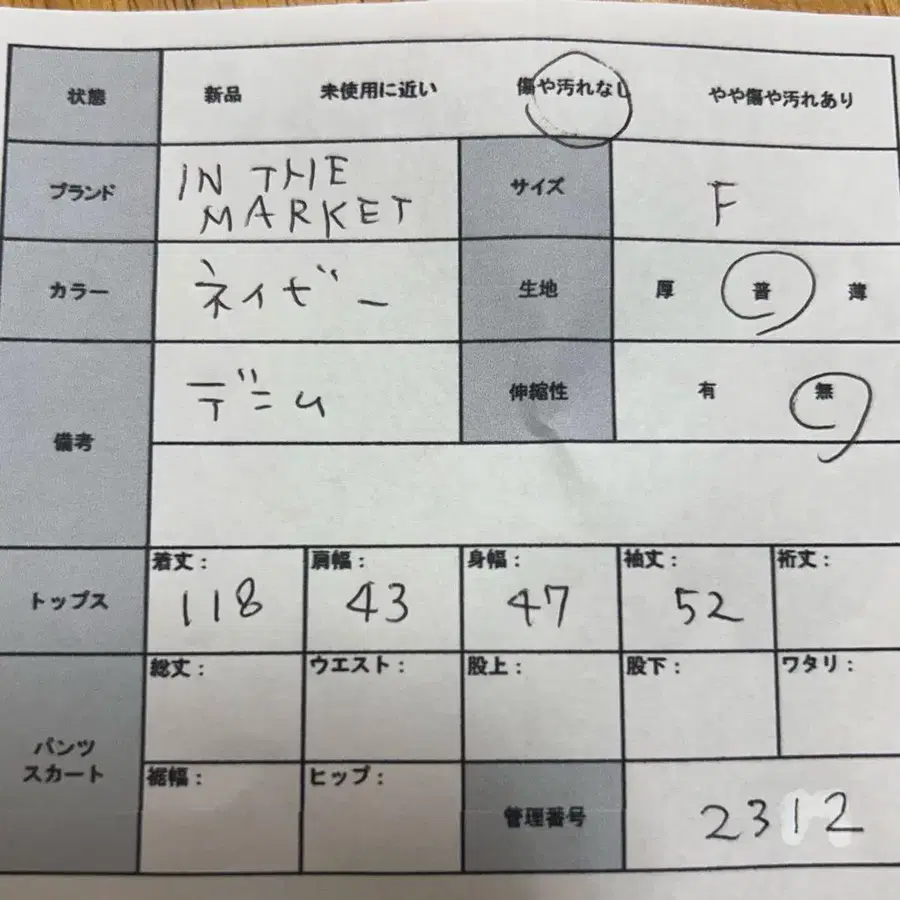 状態 新品 未使用に近い 傷や汚れなし やや傷や汚れあり
ブランド IN THE MARKET サイズ F
カラー ネイビー 生地 厚 普 薄
備考 デニム 伸縮性 有 無
トップス 着丈: 118 肩幅: 43 身幅: 47 袖丈: 52 裄丈:
パンツ スカート 総丈: ウエスト: 股上: 股下: ワタリ:
裾幅: ヒップ: 管理番号 2312